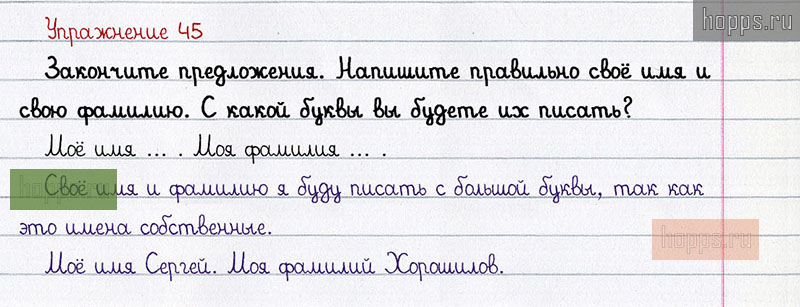 hopps.ru
Упражнение 45
Закончите предложения. Напишите правильно своё имя и
свою фамилию. С какой буквы вы будете их писать?
Моё имя ... . Моя фамилия ... .
hopps.ru
Своё имя и фамилию я буду писать с большой буквы, так как
это имена собственные.
hopps.ru
Моё имя Сергей. Моя фамилий Хорошилов.